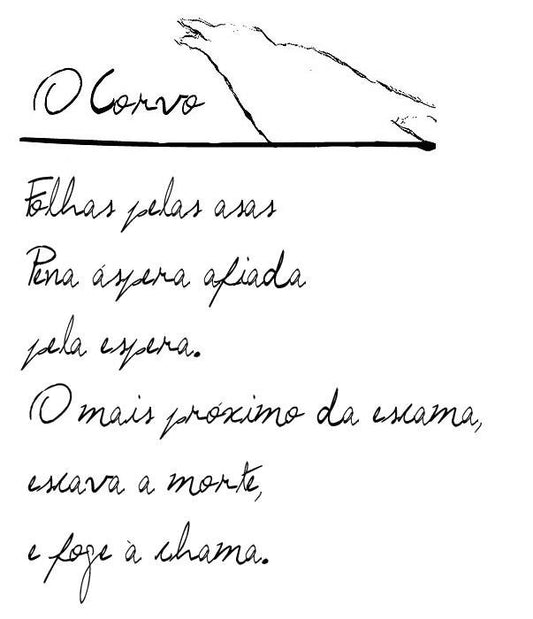 O Corvo
Folhas pelas asas
Pena áspera afiada
pela espera.
O mais próximo da escama,
escava a morte,
e foge à chama.